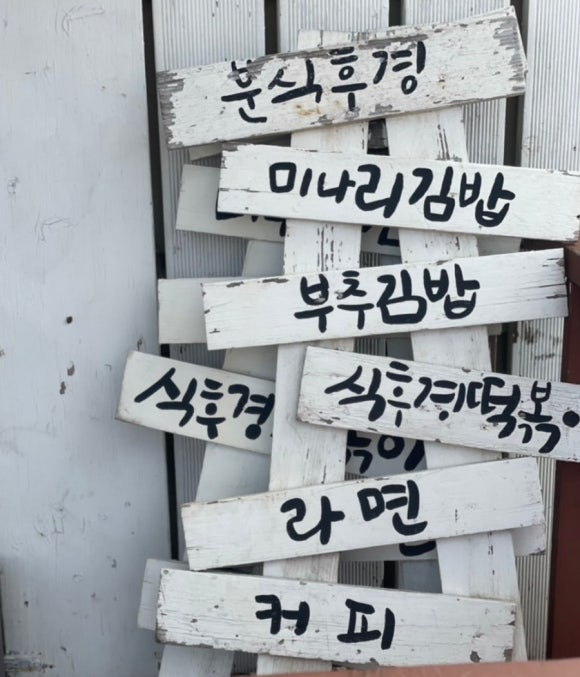 분식후경
미나리김밥
부추김밥
식후경
식후경떡볶
라면
커피